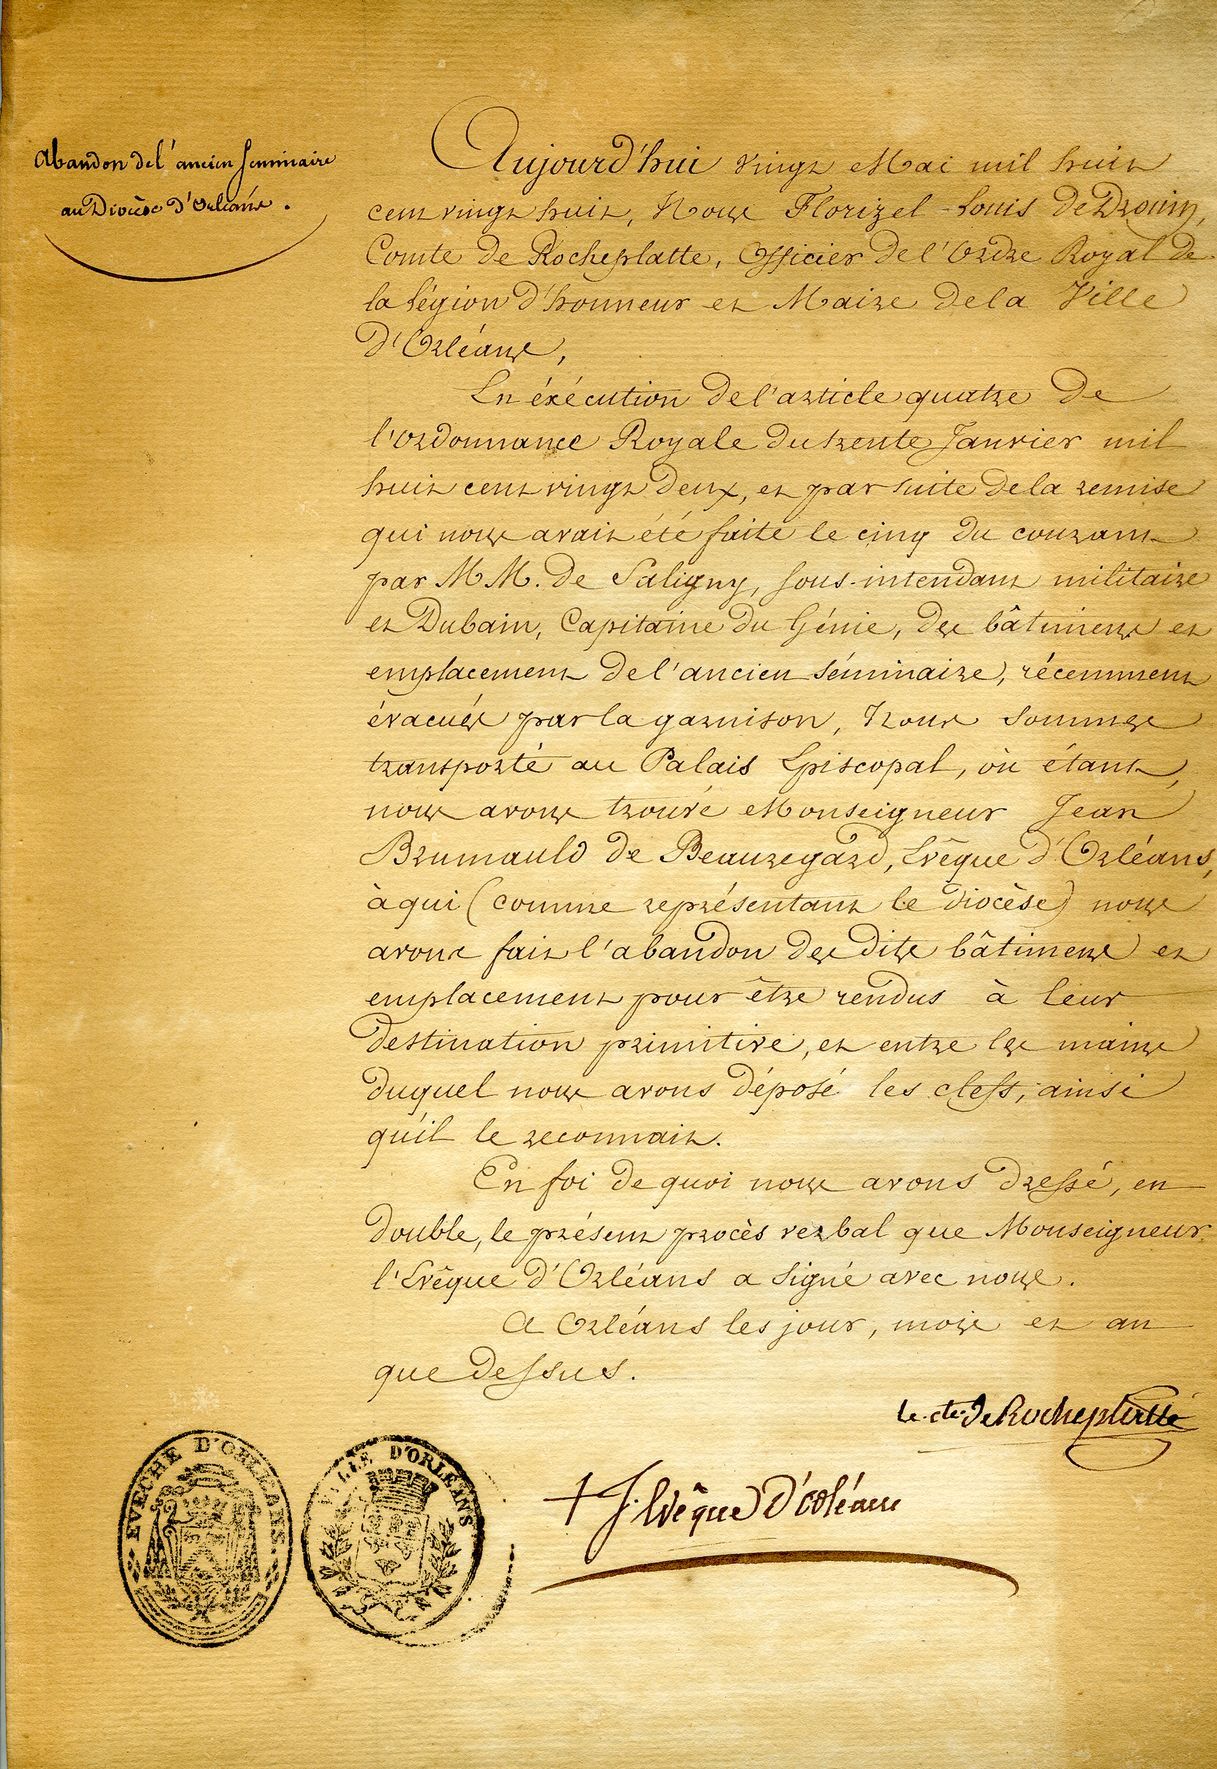 Abandon de l'ancien Séminaire
au Diocèse d'Orléans.
Aujourd'hui vingt Mai mil huit
cent vingt huit, Nous Florizel-Louis de Drouin,
Comte de Rocheplatte, Officier de l'Ordre Royal de
la légion d'honneur et Maire de la Ville
d'Orléans,
En éxécution de l'article quatre de
l'ordonnance Royale du trente Janvier mil
huit cent vingt deux, et par suite de la remise
qui nous avait été faite le cinq du courant
par MM. de Saligny, sous-intendant militaire
et Dubain, Capitaine du Génie, des bâtimens et
emplacement de l'ancien séminaire, récemment
évacués par la garnison, Nous sommes
transporté au Palais Episcopal, où étant,
nous avons trouvé Monseigneur Jean
Brumauld de Beauregard, Evêque d'Orléans,
à qui (comme représentant le diocèse) nous
avons fait l'abandon des dits bâtimens et
emplacement pour être rendus à leur
destination primitive, et entre les mains
duquel nous avons déposé les clefs, ainsi
qu'il le reconnait.
En foi de quoi nous avons dressé, en
double, le présent procès verbal que Monseigneur
l'Evêque d'Orléans a signé avec nous.
A Orléans les jour, mois et an
que dessus.
le cte. de Rocheplatte
+ J. Evêque d'Orléans
EVECHE D'ORLEANS.
VILLE D'ORLEANS